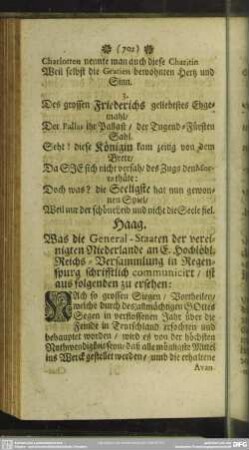 (702)
Charlotten nennte man auch diese Charitin
Weil selbst die Gratien bewohnten Hertz und
Sinn.
3.
Des grossen Friederichs geliebtestes Ehge-
mahl/
Der Pallas ihr Pallast/ der Tugend-Fürsten
Saal.
Seht! diese Königin kam zeitig von dem
Brett/
Da SIE sich nicht versah/ des Zugs
Doch was? die Seeligste hat nun gewon-
nen Spiel/
Weil nur der schöne Leib und nicht die Seele fiel.
Haag.
Was die General-Staaten der verei-
nigten Niederlande an E. Hochlöbl.
Reichs-Versammlung in Regen-
spurg schrifftlich communicirt/ ist
aus folgenden zu ersehen:
NAch so grossen Siegen/ Vortheilen/
welche durch des allmächtigen GOttes
Segen in verflossenen Jahr über die
Feinde in Teutschland erfochten und
behauptet worden/ wird es von der höchsten
Nothwendigkeit seyn/ daß alle mögligste Mittel
ins Werck gestellet werden/ und die erhaltene
Avan-